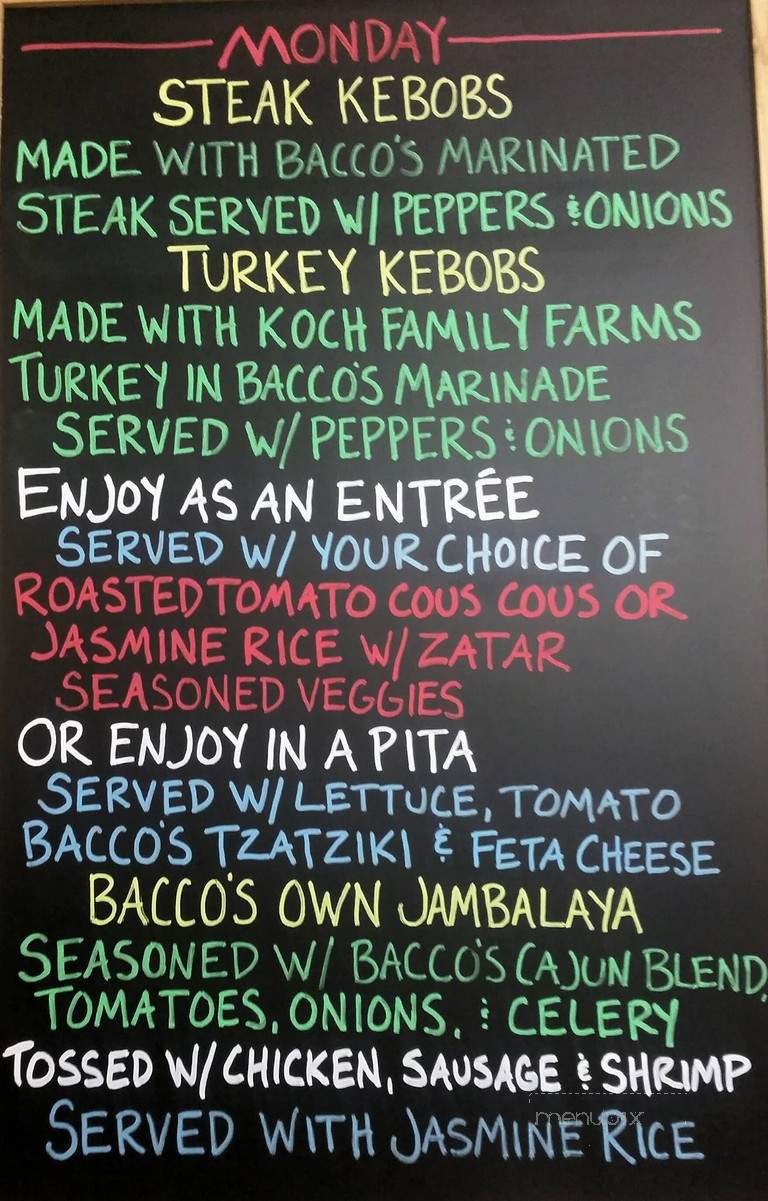 MONDAY
STEAK KEBOBS
MADE WITH BACCO'S MARINATED
STEAK SERVED W/ PEPPERS & ONIONS
TURKEY KEBOBS
MADE WITH KOCH FAMILY FARMS
TURKEY IN BACCO'S MARINADE
SERVED W/ PEPPERS & ONIONS
ENJOY AS AN ENTRÉE
SERVED W/ YOUR CHOICE OF
ROASTED TOMATO COUS COUS OR
JASMINE RICE W/ ZATAR
SEASONED VEGGIES
OR ENJOY IN A PITA
SERVED W/ LETTUCE, TOMATO
BACCO'S TZATZIKI & FETA CHEESE
BACCO'S OWN JAMBALAYA
SEASONED W/ BACCO'S CAJUN BLEND,
TOMATOES, ONIONS, & CELERY
TOSSED W/ CHICKEN, SAUSAGE & SHRIMP
menupix
SERVED WITH JASMINE RICE